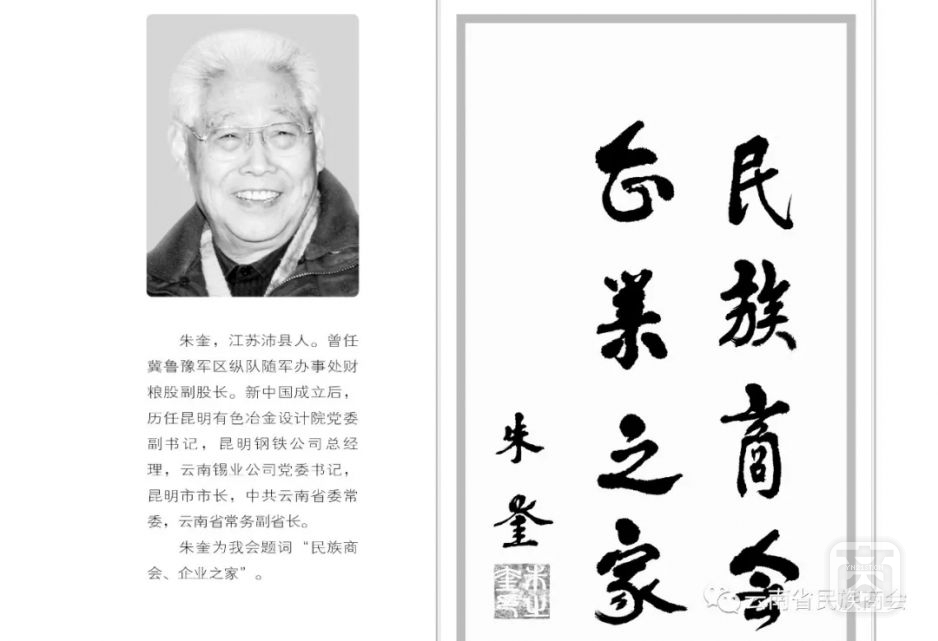 朱奎，江苏沛县人。曾任
冀鲁豫军区纵队随军办事处财
粮股副股长。新中国成立后，
历任昆明有色冶金设计院党委
副书记，昆明钢铁公司总经
理，云南锡业公司党委书记，
昆明市市长，中共云南省委常
委，云南省常务副省长。
朱奎为我会题词“民族商
会、企业之家”。
民族商会
企业之家
朱奎
云南省民族商会